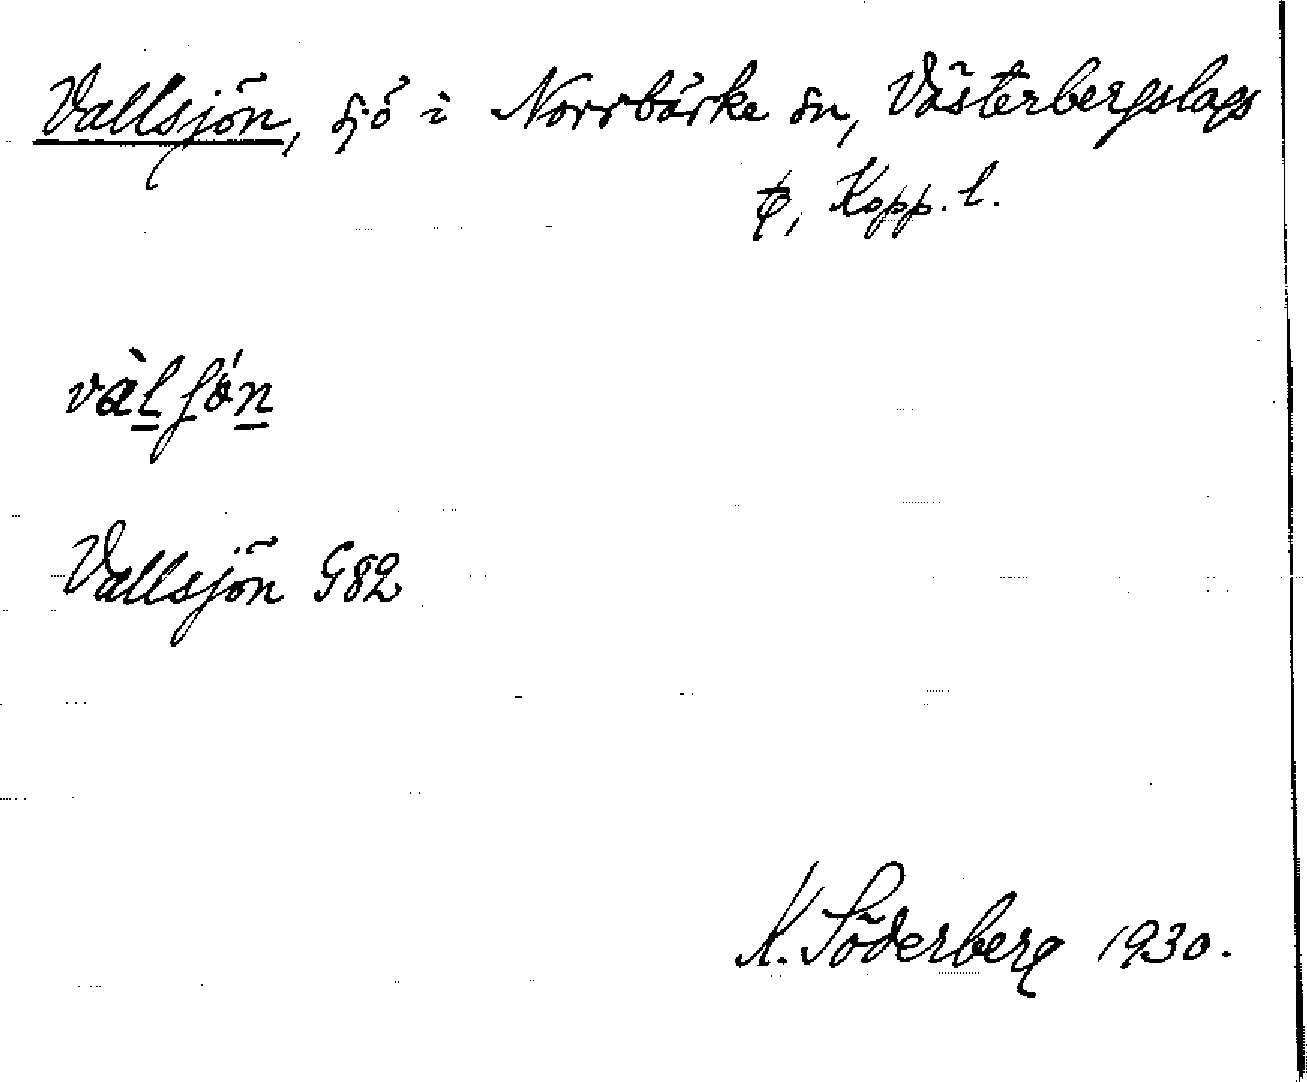 Vallsjön, sjö i Norrbärke sn, Västerbergslags
Kopp. l.
Vallsjön G82
K. Söderberg 1930.